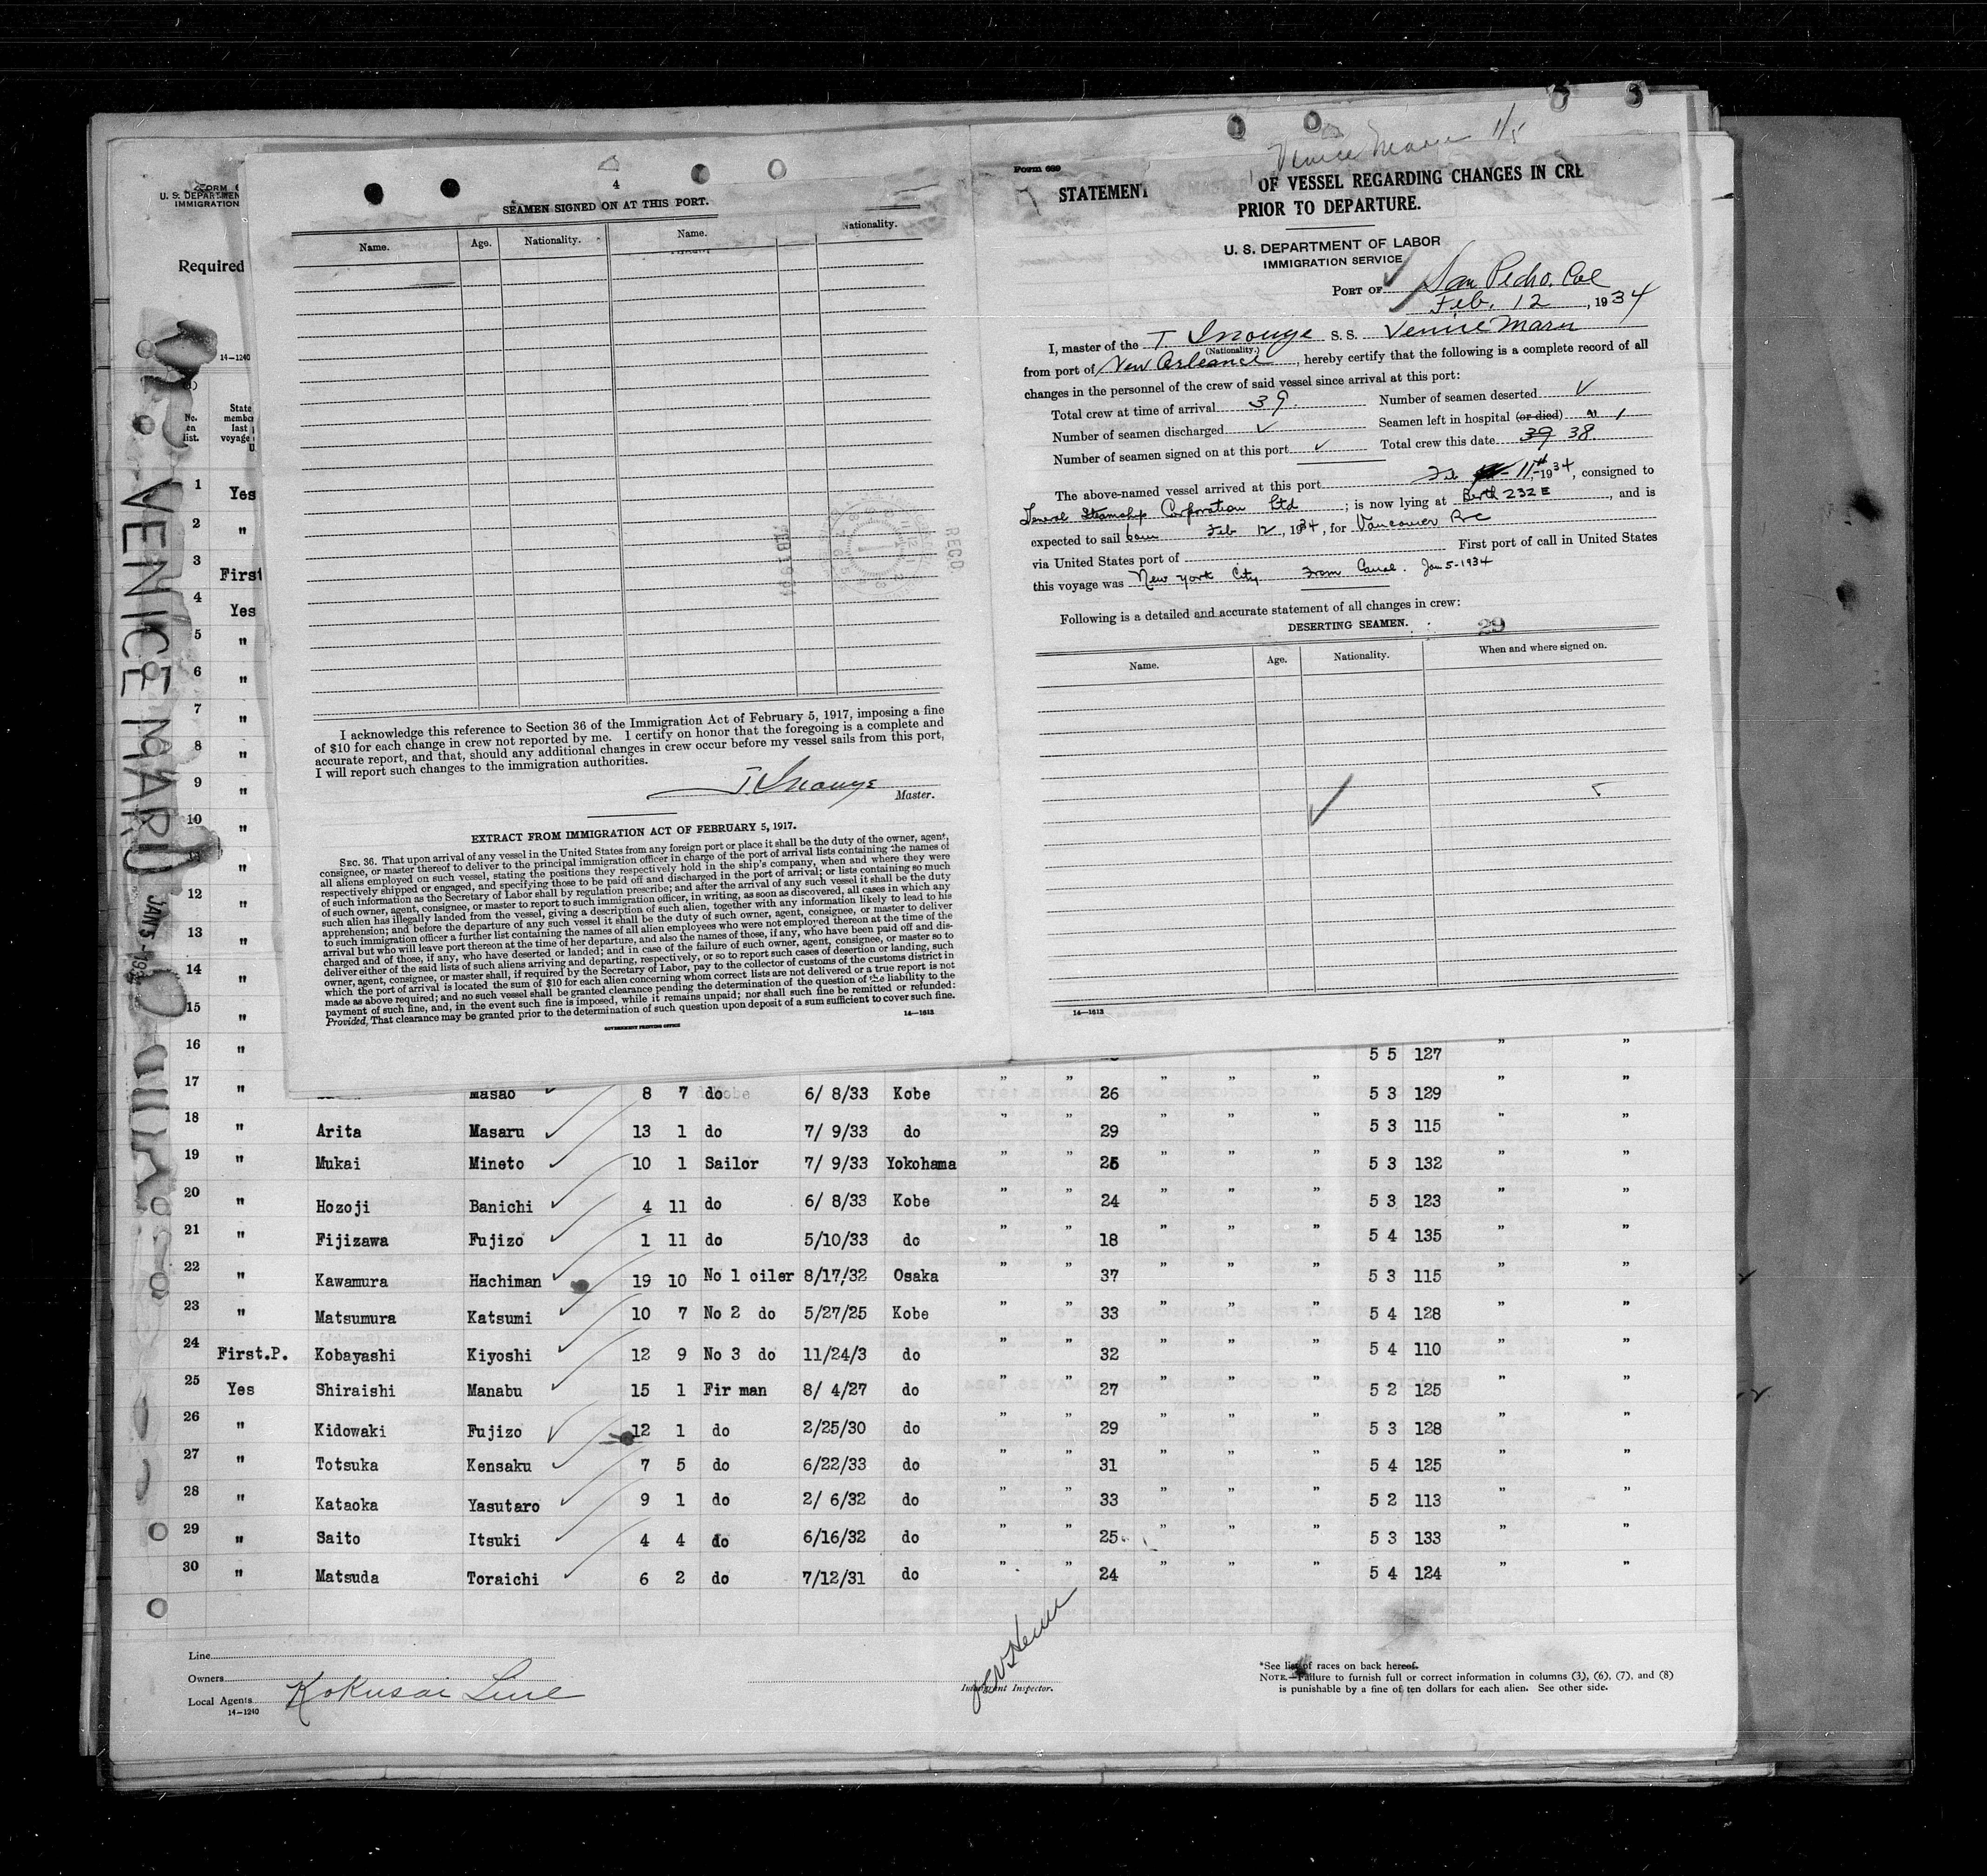 Venice Maru 1/5
FORM 6
U. S. DEPARTMEN
IMMIGRATION
Required
14—1240
No.
on
list.
State
membe
last
voyage
U.
VENICE MARU
JAN 5 - 193
4
SEAMEN SIGNED ON AT THIS PORT.
Name. Age. Nationality. Name. Nationality.
REC'D
I acknowledge this reference to Section 36 of the Immigration Act of February 5, 1917, imposing a fine
of $10 for each change in crew not reported by me. I certify on honor that the foregoing is a complete and
accurate report, and that, should any additional changes in crew occur before my vessel sails from this port,
I will report such changes to the immigration authorities.
T. Inouye
Master.
EXTRACT FROM IMMIGRATION ACT OF FEBRUARY 5, 1917.
SEC. 36. That upon arrival of any vessel in the United States from any foreign port or place it shall be the duty of the owner, agent,
consignee, or master thereof to deliver to the principal immigration officer in charge of the port of arrival lists containing the names of
all aliens employed on such vessel, stating the positions they respectively hold in the ship's company, when and where they were
respectively shipped or engaged, and specifying those to be paid off and discharged in the port of arrival; or lists containing so much
of such information as the Secretary of Labor shall by regulation prescribe; and after the arrival of any such vessel it shall be the duty
of such owner, agent, consignee, or master to report to such immigration officer, in writing, as soon as discovered, all cases in which any
such alien has illegally landed from the vessel, giving a description of such alien, together with any information likely to lead to his
apprehension; and before the departure of any such vessel it shall be the duty of such owner, agent, consignee, or master to deliver
to such immigration officer a further list containing the names of all alien employees who were not employed thereon at the time of the
arrival but who will leave port thereon at the time of her departure, and also the names of those, if any, who have been paid off and dis-
charged and of those, if any, who have deserted or landed; and in case of the failure of such owner, agent, consignee, or master so to
deliver either of the said lists of such aliens arriving and departing, respectively, or so to report such cases of desertion or landing, such
owner, agent, consignee, or master shall, if required by the Secretary of Labor, pay to the collector of customs of the customs district in
which the port of arrival is located the sum of $10 for each alien concerning whom correct lists are not delivered or a true report is not
made as above required; and no such vessel shall be granted clearance pending the determination of the question of the liability to the
payment of such fine, and, in the event such fine is imposed, while it remains unpaid; nor shall such fine be remitted or refunded:
Provided, That clearance may be granted prior to the determination of such question upon deposit of a sum sufficient to cover such fine.
GOVERNMENT PRINTING OFFICE 14—1613
Form 689
STATEMENT OF VESSEL REGARDING CHANGES IN CRE
PRIOR TO DEPARTURE.
U. S. DEPARTMENT OF LABOR
IMMIGRATION SERVICE
PORT OF San Pedro, Cal
Feb. 12, 1934
I, master of the T Inouye S. S. Venice Maru
(Nationality.)
from port of New Orleance, hereby certify that the following is a complete record of all
changes in the personnel of the crew of said vessel since arrival at this port:
Total crew at time of arrival 39. Number of seamen deserted ✓
Number of seamen discharged ✓ Seamen left in hospital (or died) 1
Number of seamen signed on at this port ✓ Total crew this date 39 38
The above-named vessel arrived at this port Feb 11th 1934, consigned to
General Steamship Corporation Ltd; is now lying at Berth 232E, and is
expected to sail 6am Feb 12, 1934, for Vancouver BC
via United States port of First port of call in United States
this voyage was New York City From Canal. Jan 5-1934
Following is a detailed and accurate statement of all changes in crew:
DESERTING SEAMEN. 29
Name. Age. Nationality. When and where signed on.
14—1613
1 Yes
2 "
3 First
4 Yes
5 "
6 "
7 "
8 "
9 "
10 "
11 "
12 "
13 "
14 "
15 "
16 " 5 5 127 " "
17 " Masao 8 7 do 6/ 8/33 Kobe " " 26 " " " 5 3 129 " "
18 " Arita Masaru 13 1 do 7/ 9/33 do " " 29 " " " 5 3 115 " "
19 " Mukai Mineto 10 1 Sailor 7/ 9/33 Yokohama " " 25 " " " 5 3 132 " "
20 " Hozoji Banichi 4 11 do 6/ 8/33 Kobe " " 24 " " " 5 3 123 " "
21 " Fijizawa Fujizo 1 11 do 5/10/33 do " " 18 " " " 5 4 135 " "
22 " Kawamura Hachiman 19 10 No 1 oiler 8/17/32 Osaka " " 37 " " " 5 3 115 " "
23 " Matsumura Katsumi 10 7 No 2 do 5/27/25 Kobe " " 33 " " " 5 4 128 " "
24 First.P. Kobayashi Kiyoshi 12 9 No 3 do 11/24/3 do " " 32 " " " 5 4 110 " "
25 Yes Shiraishi Manabu 15 1 Fir man 8/ 4/27 do " " 27 " " " 5 2 125 " "
26 " Kidowaki Fujizo 12 1 do 2/25/30 do " " 29 " " " 5 3 128 " "
27 " Totsuka Kensaku 7 5 do 6/22/33 do " " 31 " " " 5 4 125 " "
28 " Kataoka Yasutaro 9 1 do 2/ 6/32 do " " 33 " " " 5 2 113 " "
29 " Saito Itsuki 4 4 do 6/16/32 do " " 25 " " " 5 3 133 " "
30 " Matsuda Toraichi 6 2 do 7/12/31 do " " 24 " " " 5 4 124 " "
Line
Owners
Local Agents Kokusai Line
14—1240
Immigrant Inspector.
*See list of races on back hereof.
NOTE.—Failure to furnish full or correct information in columns (3), (6), (7), and (8)
is punishable by a fine of ten dollars for each alien. See other side.